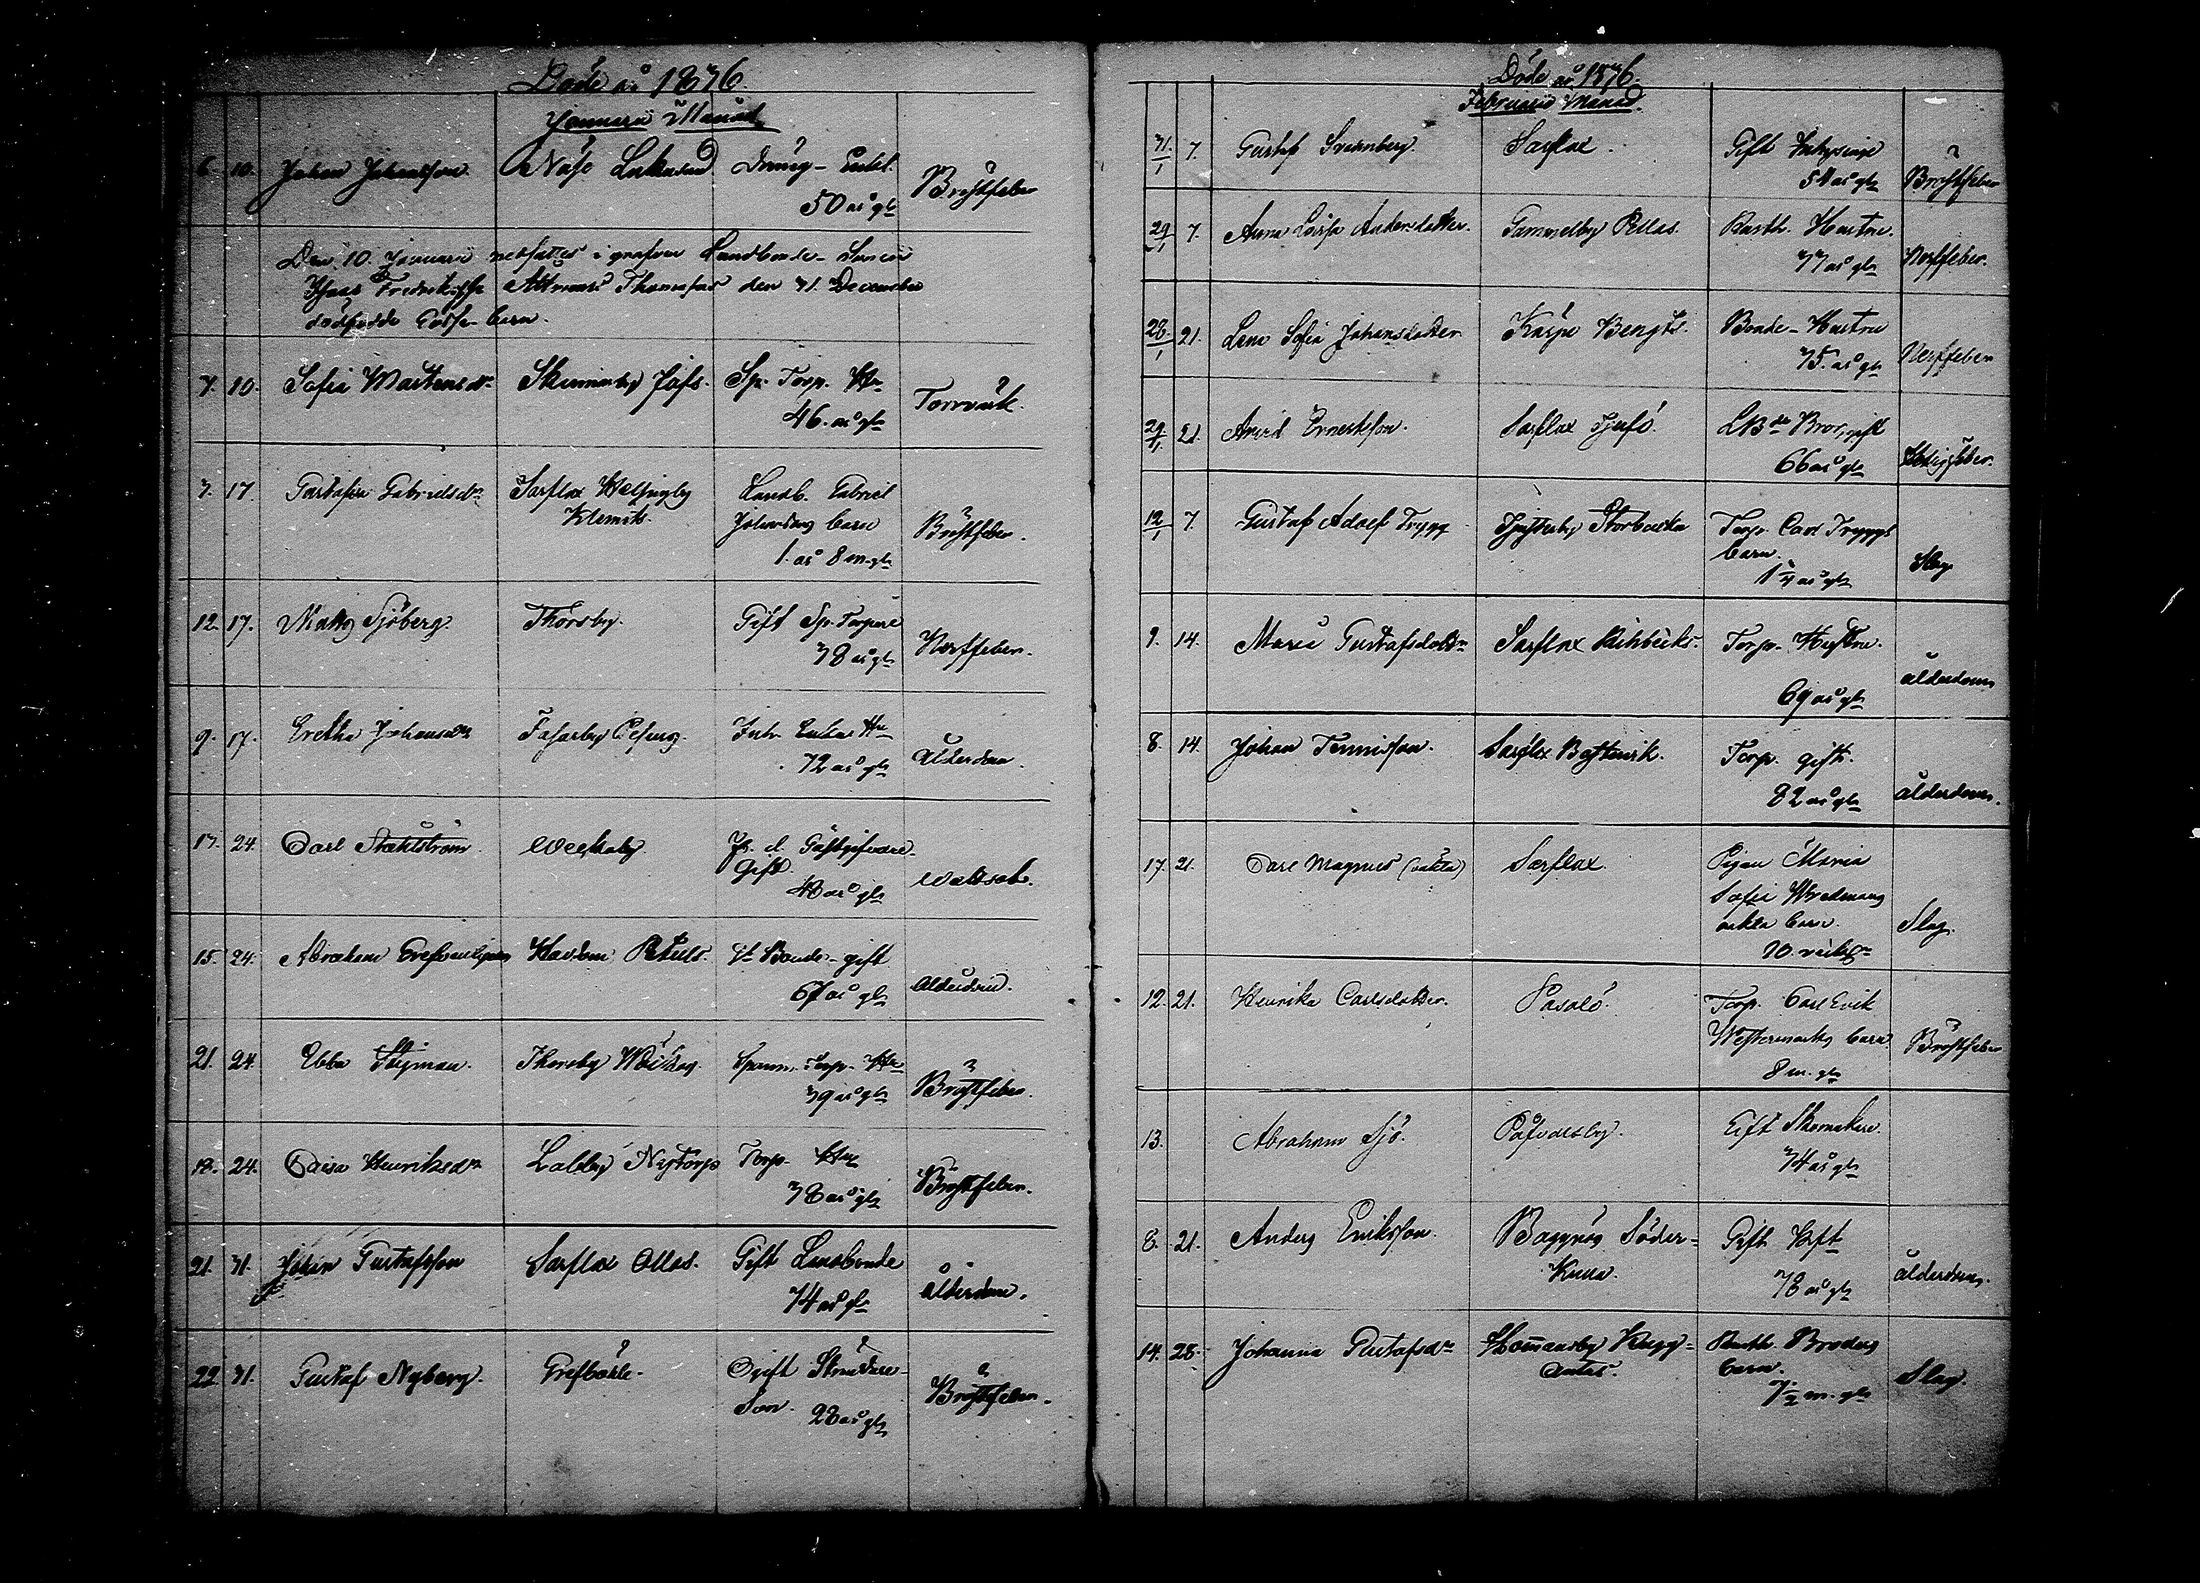 Döde år 1836.
Januarii Månad
6. 10. Johan Johansson Näse Lukasas Dräng- Enkl.
50 år gl Bröstfeber
Den 10 Januarii nedsattes i grafven Landbonde- Sonens
Isaac Fredrikss Thomasas den 31. December
dödfödde Gosse-barn.
7. 10. Sofia Mårtensdr Skinnarby Jofs. Sp. Torp. Hu
46. år gl Torrvärk.
3. 17. Gustafva Gabrielsdr Sarflax Helsingby Landb. Gabriel
Klemets. Johansons barn
1. år 8 m. gl Bröstfeber.
12. 17. Matts Sjöberg. Thorsby. Gift Sp. Torpare
38 år gl Nerffeber.
9. 17. Gretha Johansdr Fasarby Inh. Enka Hu
72 år gl Ålderdom.
17. 24. Carl Stahlström Weckoby F. d. Gästgifvare-
Gift.
48 år gl Wattsot.
15. 24. Abraham Hardom Påvels. Bonde- gift
67 år gl Ålderdom.
21. 24. Ebba Stigman. Thorsby Torp. Hu
39 år gl Bröstfeber.
18. 24. Caisa Henriksdr Labby Nytorp Torp. Hu
38 år gl Bröstfeber.
21. 31. Johan Gustafsson Sarflax Ollas. Gift Landbonde
74 år gl Ålderdom.
22 31. Gustaf Nyberg. Grefböhle. Ogift Skräddare-
Son. 28 år gl Bröstfeber.
Döde år 1836.
Februarii Månad.
31/1 7. Gustaf Sarflax. Gift Inhysing
54 år gl Bröstfeber
29/1 7. Anna Lovisa Andersdotter. Gammelby Pellas. Rusth. Hustru.
37 år gl Nerffeber.
28/1 21. Lena Sofia Johansdotter Kasper Bengts. Bonde- Hustru
35. år gl Nerffeber
29/1 21. Arvid Ernestsson. Sarflax Tjusö. Bror, gift
66 år gl Hetsigfeber.
12/1 7. Gustaf Adolf Trygg Tjusterby Storbacka Torp. Carl Tryggs
barn.
1 3/4 år gl Slag
9. 14. Maria Gustafsdotter Sarflax Torp. Hustru.
69 år gl Ålderdom
8. 14. Johan Tennisson. Sarflax Bastuvik. Torp. gift.
82 år gl Ålderdom.
17. 21. Carl Magnus (oäkta) Sarflax. Pigan Maria
Sofia Wredmans
oäkta barn.
10. veckor Slag.
12. 21. Henrika Carlsdotter. Påsalö. Torp. Carl Erik
Westermarks barn
8 m. gl Bröstfeber
13. Abraham Sjö. Påfvalsby. Gift Skomakare.
34 år gl
8. 21. Anders Eriksson. Baggnäs Söder-
Kulla. Gift
38 år gl Ålderdom.
14. 28. Johanna Gustafsdr Rusth. Broders
Antas. barn.
m. gl Slag.